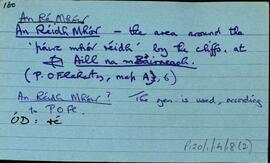 160
An Ré Mhór
An Réidh Mhór — the area around the
'páirc mhór réidh' by the cliffs at
Aill na mBáirneach
(P. O Flaherty, map A3, 6)
An Réidh Mhór? The gen. is used, according
to P O Fc.
ÓD: té
P120/1/4/8(2)